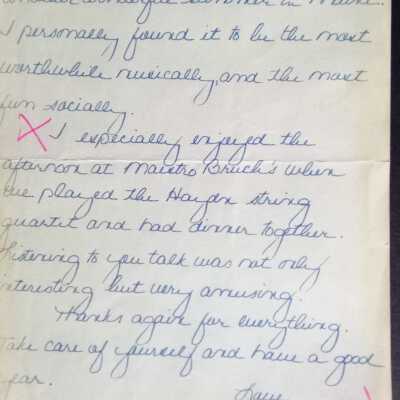 wonderful summer in Maine.
I personally found it to be the most
worthwhile musically, and the most
fun socially.
X I especially enjoyed the
afternoon at Maestro Bruck's when
we played the Haydn string
quartet and had dinner together.
Listening to you talk was not only
interesting but very amusing.
Thanks again for everything.
Take care of yourself and have a good
year.
Love